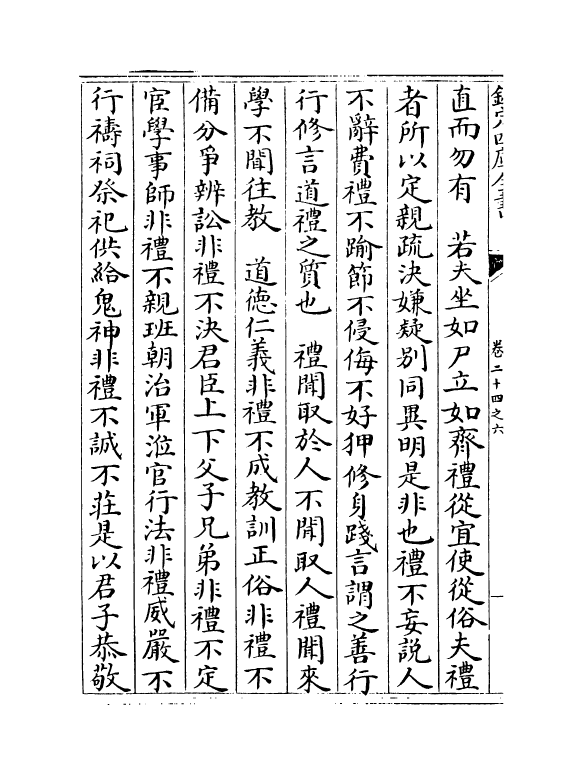 欽定四庫全書
卷二十四之六
直而勿有　若夫坐如尸立如齊禮從宜使從俗夫禮
者所以定親疏決嫌疑別同異明是非也禮不妄説人
不辭費禮不踰節不侵侮不好狎修身踐言謂之善行
行修言道禮之質也　禮聞取於人不聞取人禮聞來
學不聞往教　道德仁義非禮不成教訓正俗非禮不
備分爭辨訟非禮不決君臣上下父子兄弟非禮不定
宦學事師非禮不親班朝治軍涖官行法非禮威嚴不
行禱祠祭祀供給鬼神非禮不誠不莊是以君子恭敬